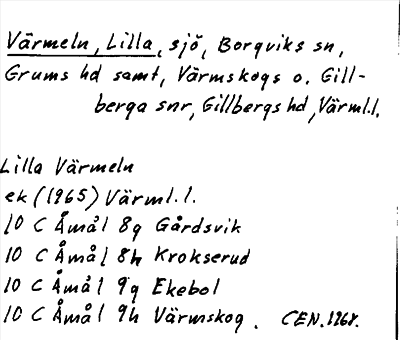 Värmeln, Lilla, sjö, Borgviks sn,
Grums hd samt, Värmskogs o. Gill-
berga snr, Gillbergs hd, Värml.l.
Lilla Värmeln
ek (1965) Värml.l.
10 C Åmål 8g Gårdsvik
10 C Åmål 8h Krokserud
10 C Åmål 9g Ekebol
10 C Åmål 9h Värmskog. CEN.1968.